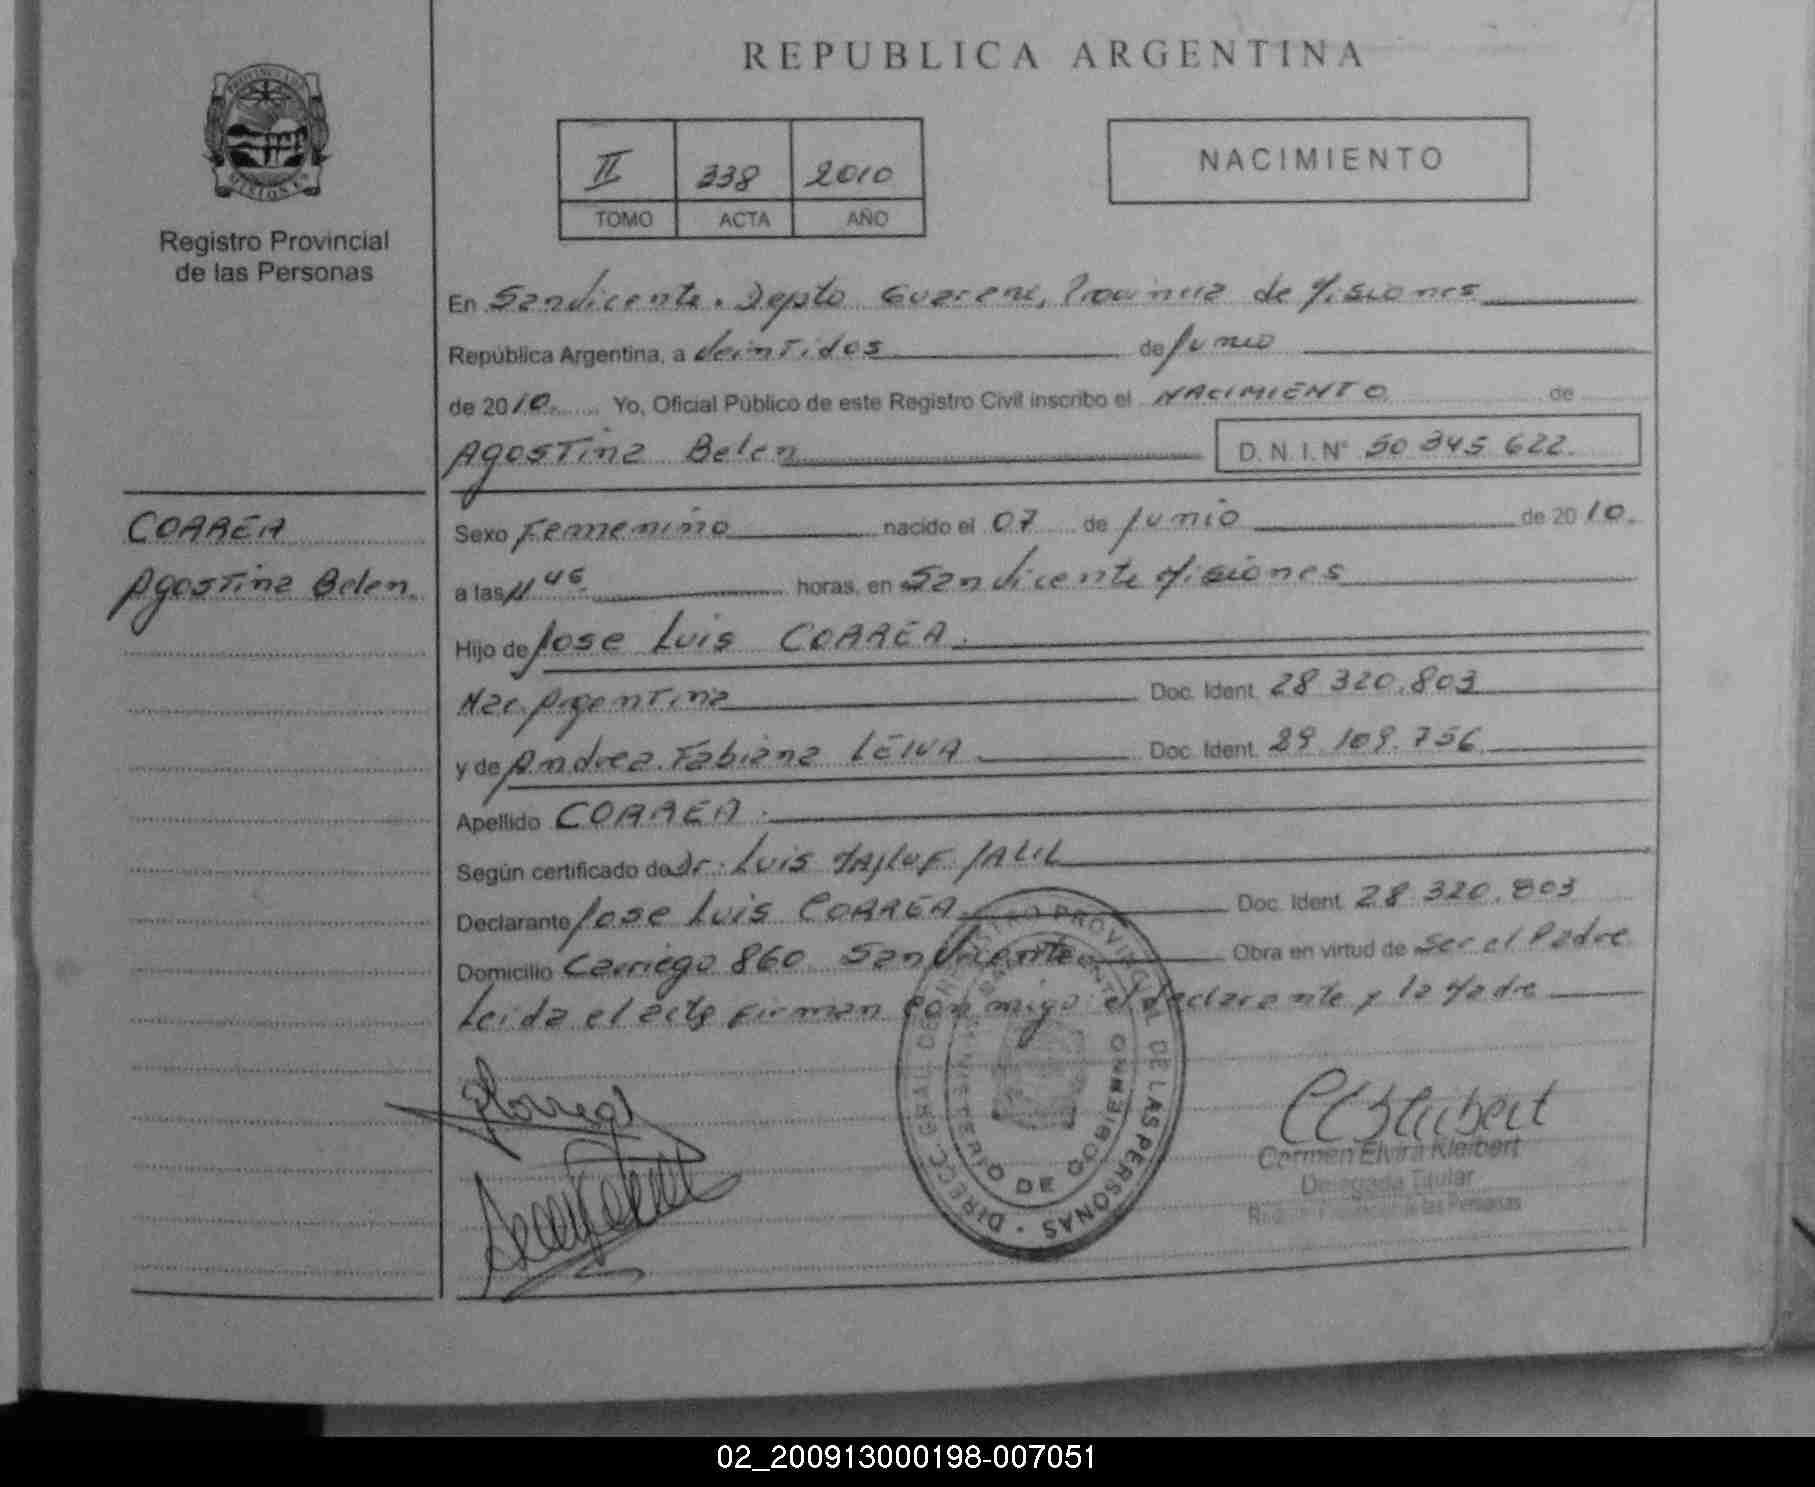 REPUBLICA ARGENTINA
PROVINCIA DE
MISIONES
Registro Provincial
de las Personas
II 338 2010
TOMO ACTA AÑO
NACIMIENTO
En San Vicente. Depto Guarani, Provincia de Misiones
República Argentina, a Veintidos de Junio
de 2010. Yo, Oficial Público de este Registro Civil inscribo el NACIMIENTO de
Agostina Belen D.N.I.Nº 50 345 622.
CORREA
Agostina Belen.
Sexo Femenino nacido el 07 de Junio de 2010.
a las 11 46 horas, en San Vicente Misiones
Hijo de Jose Luis CORREA.
Nac. Argentina Doc. Ident. 28 320.803
y de Andrea Fabiana LEIVA Doc. Ident. 29.109.756
Apellido CORREA.
Según certificado de Dr. Luis JALIL
Declarante Jose Luis CORREA Doc. Ident. 28.320.803
Domicilio Carriego 860 San Vicente Obra en virtud de Ser el Padre
Leida el acta firman conmigo el declarante y la Madre
DIRECC. GRAL. DEL REGISTRO PROVINCIAL DE LAS PERSONAS
MINISTERIO DE GOBIERNO
Carmen Elvira Kleibert
Delegada Titular
Registro Provincial de las Personas
02_200913000198-007051